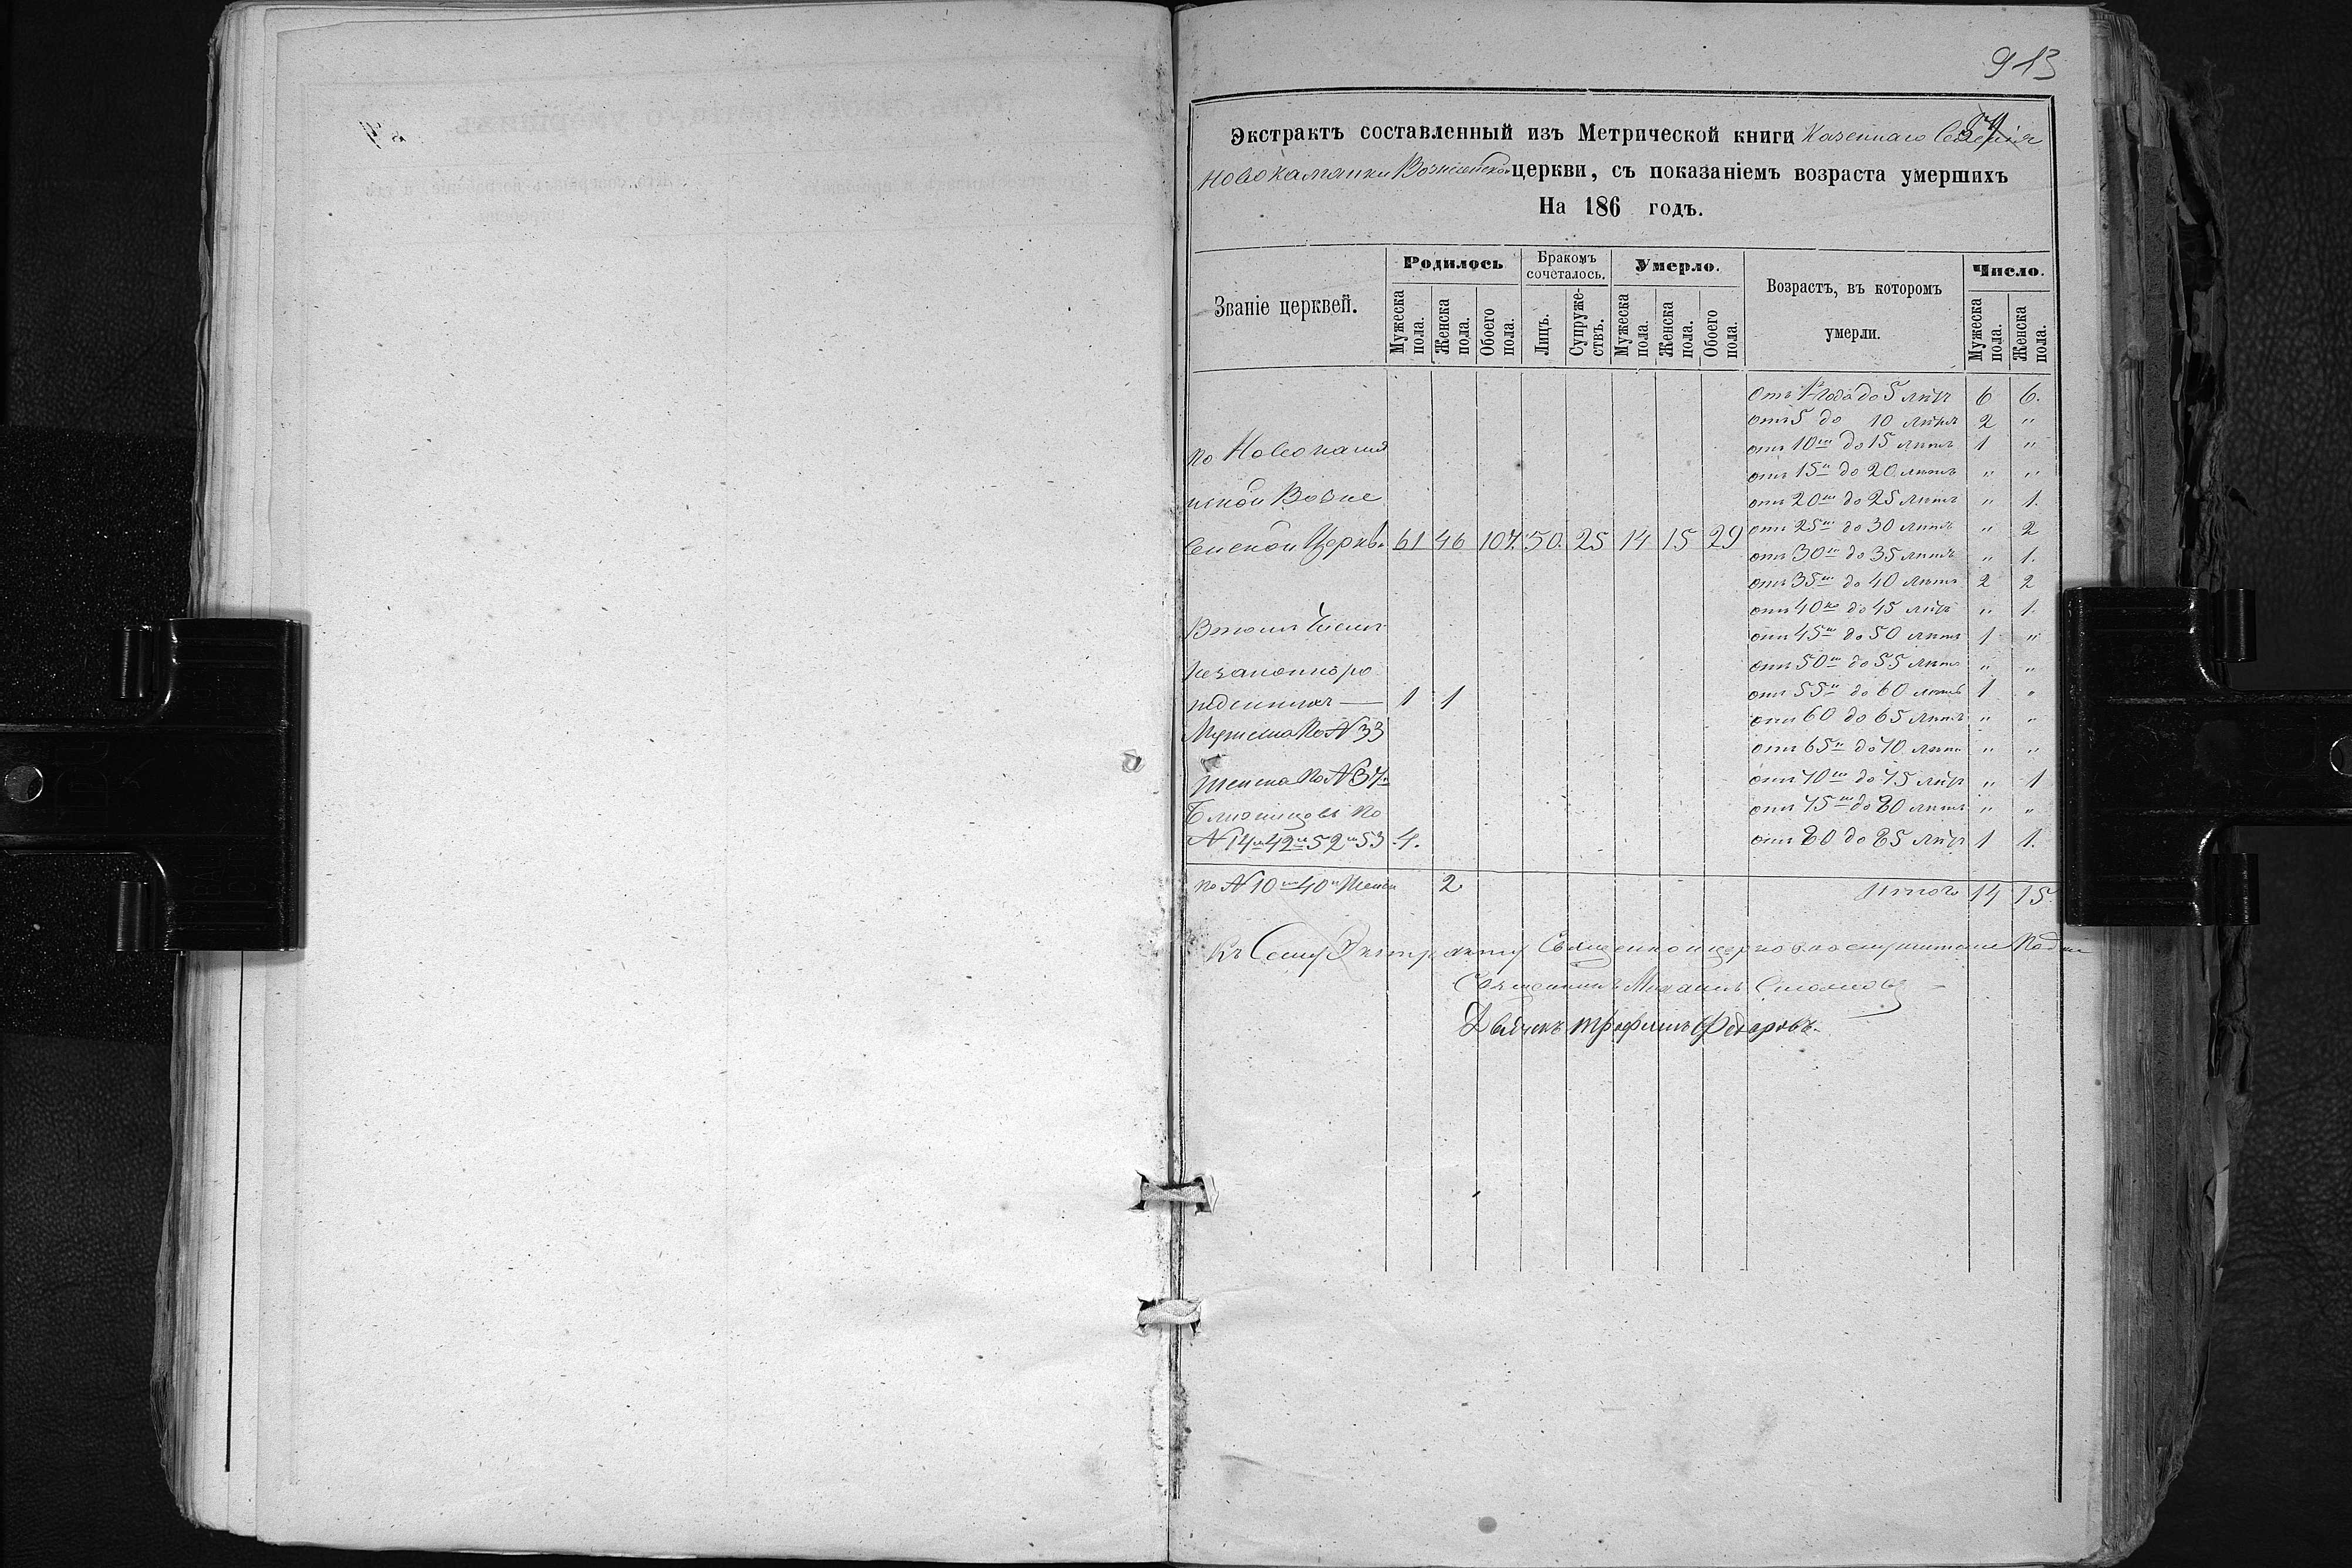 913
Экстрактъ составленный изъ Метрической книги Казеннаго Селенія
Новокамянки Вознесенской церкви, съ показаніемъ возраста умершихъ
На 186 годъ.
Званіе церквей.
Родилось
Бракомъ сочеталось.
Умерло.
Возрастъ, въ которомъ умерли.
Число.
Мужеска пола.
Женска пола.
Обоего пола.
Лицъ.
Супружествъ.
Мужеска пола.
Женска пола.
Обоего пола.
Мужеска пола.
Женска пола.
Отъ 1го года до 5 лѣтъ 6 6.
отъ 5 до 10 лѣтъ 2 "
отъ 10ти до 15 лѣтъ 1 "
отъ 15и до 20 лѣтъ " "
отъ 20ти до 25 лѣтъ " 1.
отъ 25ти до 30 лѣтъ " 2
отъ 30ти до 35 лѣтъ " 1.
отъ 35ти до 40 лѣтъ 2 2
отъ 40ка до 45 лѣтъ " 1.
отъ 45ти до 50 лѣтъ 1 "
отъ 50ти до 55 лѣтъ " "
отъ 55и до 60 лѣтъ 1 "
отъ 60 до 65 лѣтъ " "
отъ 65и до 70 лѣтъ " "
отъ 70ти до 75 лѣтъ " 1
отъ 75ти до 80 лѣтъ " "
отъ 80 до 85 лѣтъ 1 1.
Итого 14 15
по Новокамя
нской Возне
сенской Церкви 61 46 107. 50. 25 14 15 29
Втомъ Числѣ
Незаконноро
жденныхъ — 1 1
Мужска По N 33
Женска По N 37.
Близнецовъ По
N 14м 42м 52м 53 4.
по N 10м 40м Женск 2
Къ Сему Экстракту Священно и церковнослужители Подпи
Священникъ Михаилъ
Дьячекъ Трофимъ Федоровъ.